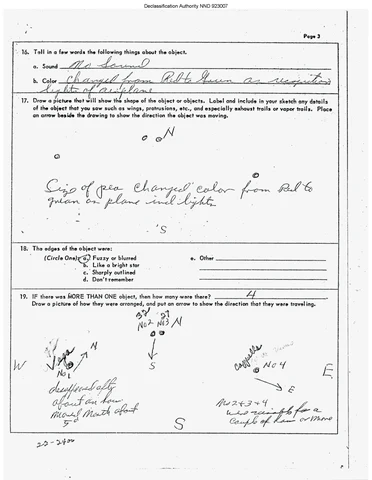 Declassification Authority NND 923007
Page 3
16. Tell in a few words the following things about the object.
a. Sound No Sound
b. Color Changed from Red to Green as
lights of airplane
17. Draw a picture that will show the shape of the object or objects. Label and include in your sketch any details
of the object that you saw such as wings, protrusions, etc., and especially exhaust trails or vapor trails. Place
an arrow beside the drawing to show the direction the object was moving.
N
Size of pea changed color from Red to
green as plane ind lights
S
18. The edges of the object were:
(Circle One): a. Fuzzy or blurred
b. Like a bright star
c. Sharply outlined
d. Don't remember
e. Other
19. IF there was MORE THAN ONE object, then how many were there? 4
Draw a picture of how they were arranged, and put an arrow to show the direction that they were traveling.
No 2 No 3 N
Vega N
W No 1
S
Capella
No 4
E
E
disappeared after
about an hour
moved North about
5°
No 2 & 3 & 4
were visible for a
couple of hours or more
S